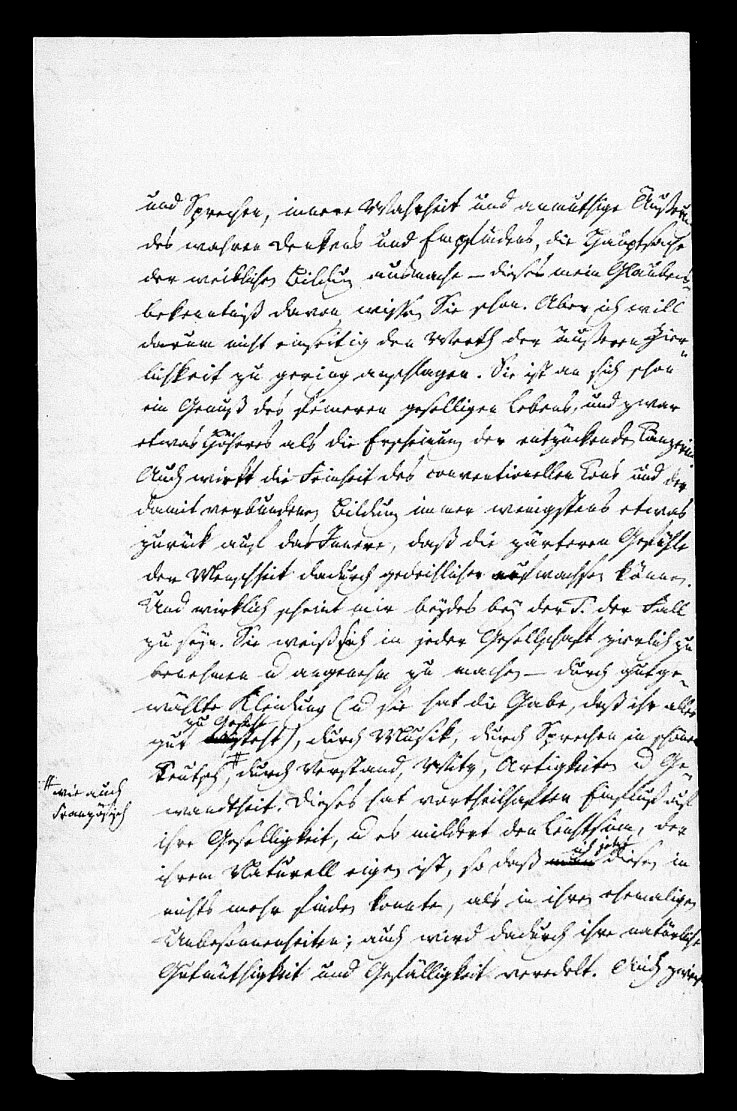 und Sprechen, innere Wahrheit und anmuthige Äußerun
des wahren Denkens und Empfindens, die Hauptsache
der weiblichen Bildung ausmache – dieses mein Glaubens-
bekenntniß davon wissen Sie schon. Aber ich will
darum nicht einseitig den Werth der äußeren Zier-
lichkeit zu gering anschlagen. Sie ist an sich schon
ein Genuß des feineren geselligen Lebens, und zwar
etwas Höheres als die Erscheinung der entzückenden Tänzerin
Auch wirkt die Feinheit des conventionellen Tons und der
damit verbundenen Bildung immer wenigstens etwas
zurück auf das Innere, daß die zärteren Gefühle
der Menschheit dadurch gedeihlicher aufwachsen können.
Und wirklich scheint mir beydes bey der T. der Fall
zu seyn. Sie weiß sich in jeder Gesellschaft zierlich zu
benehmen u angenehm zu machen – durch gutge-
wählte Kleidung (u sie hat die Gabe, daß ihr alles
gut zu Gesichte steht), durch Musik, durch Sprechen in schönem
Teutsch, # durch Verstand, Witz, Artigkeiten u Ge-
# wie auch
Französisch
wandtheit. Dieses hat vortheilhaften Einfluß auf
ihre Geselligkeit, u es mildert den Leichtsinn, der
ihrem Naturell eigen ist, so daß ich jetzt diesen in
nichts mehr finden konnte, als in ihren ehemaligen
Unbesonnenheiten; auch wird dadurch ihre natürliche
Gutmüthigkeit und Gefälligkeit veredelt. Auch